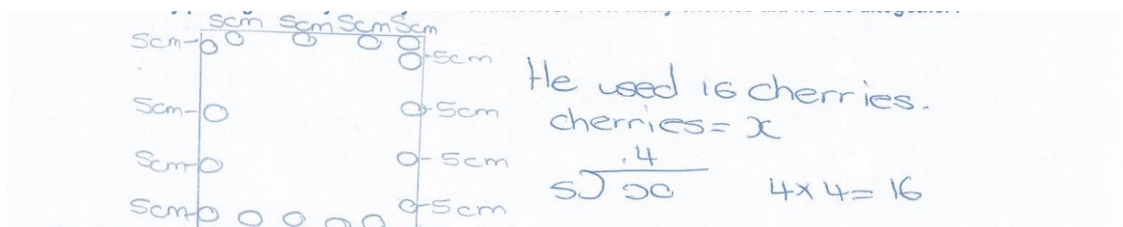 5cm 5cm 5cm 5cm
5cm
5cm
5cm
5cm
5cm
5cm
5cm
5cm
He used 16 cherries.
cherries = x
.4
5) x
4 x 4 = 16